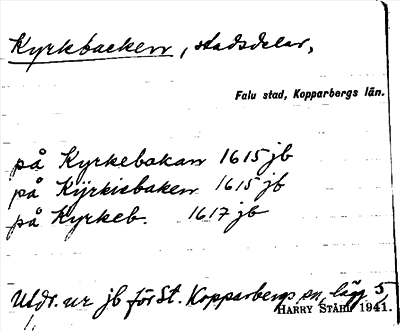 Kyrkbacken, stadsdelar,
Falu stad, Kopparbergs län.
på Kyrkebakan 1615 jb
på Kyrkiebaken 1615 jb
på Kyrkeb. 1617 jb
Utdr. ur jb för St. Kopparbergs sn, lägg 5,
HARRY STÅHL 1941.